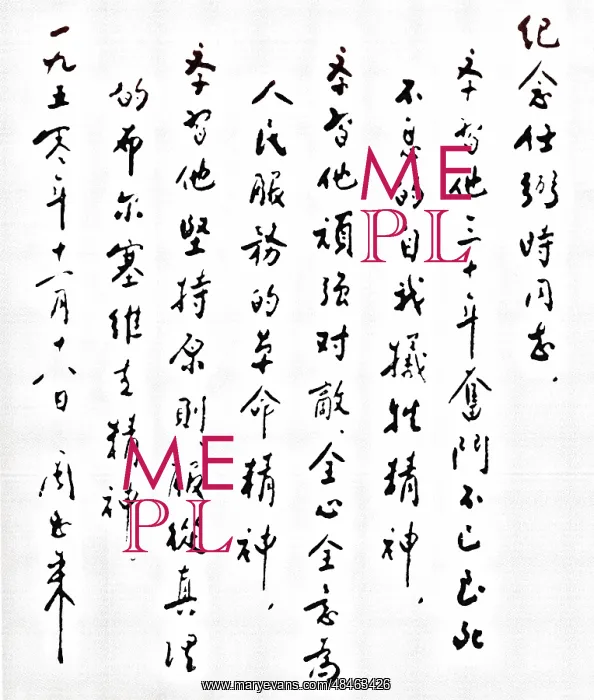 纪念任弼時同志.
学習他三十年奮鬥不已至死
不息的自我犧牲精神,
学習他頑强对敵、全心全意為
人民服務的革命精神,
学習他堅持原則、服從真理
的布尔塞維克精神.
一九五零年十一月十八日 周恩来
ME
PL
ME
PL
www.maryevans.com/48463426